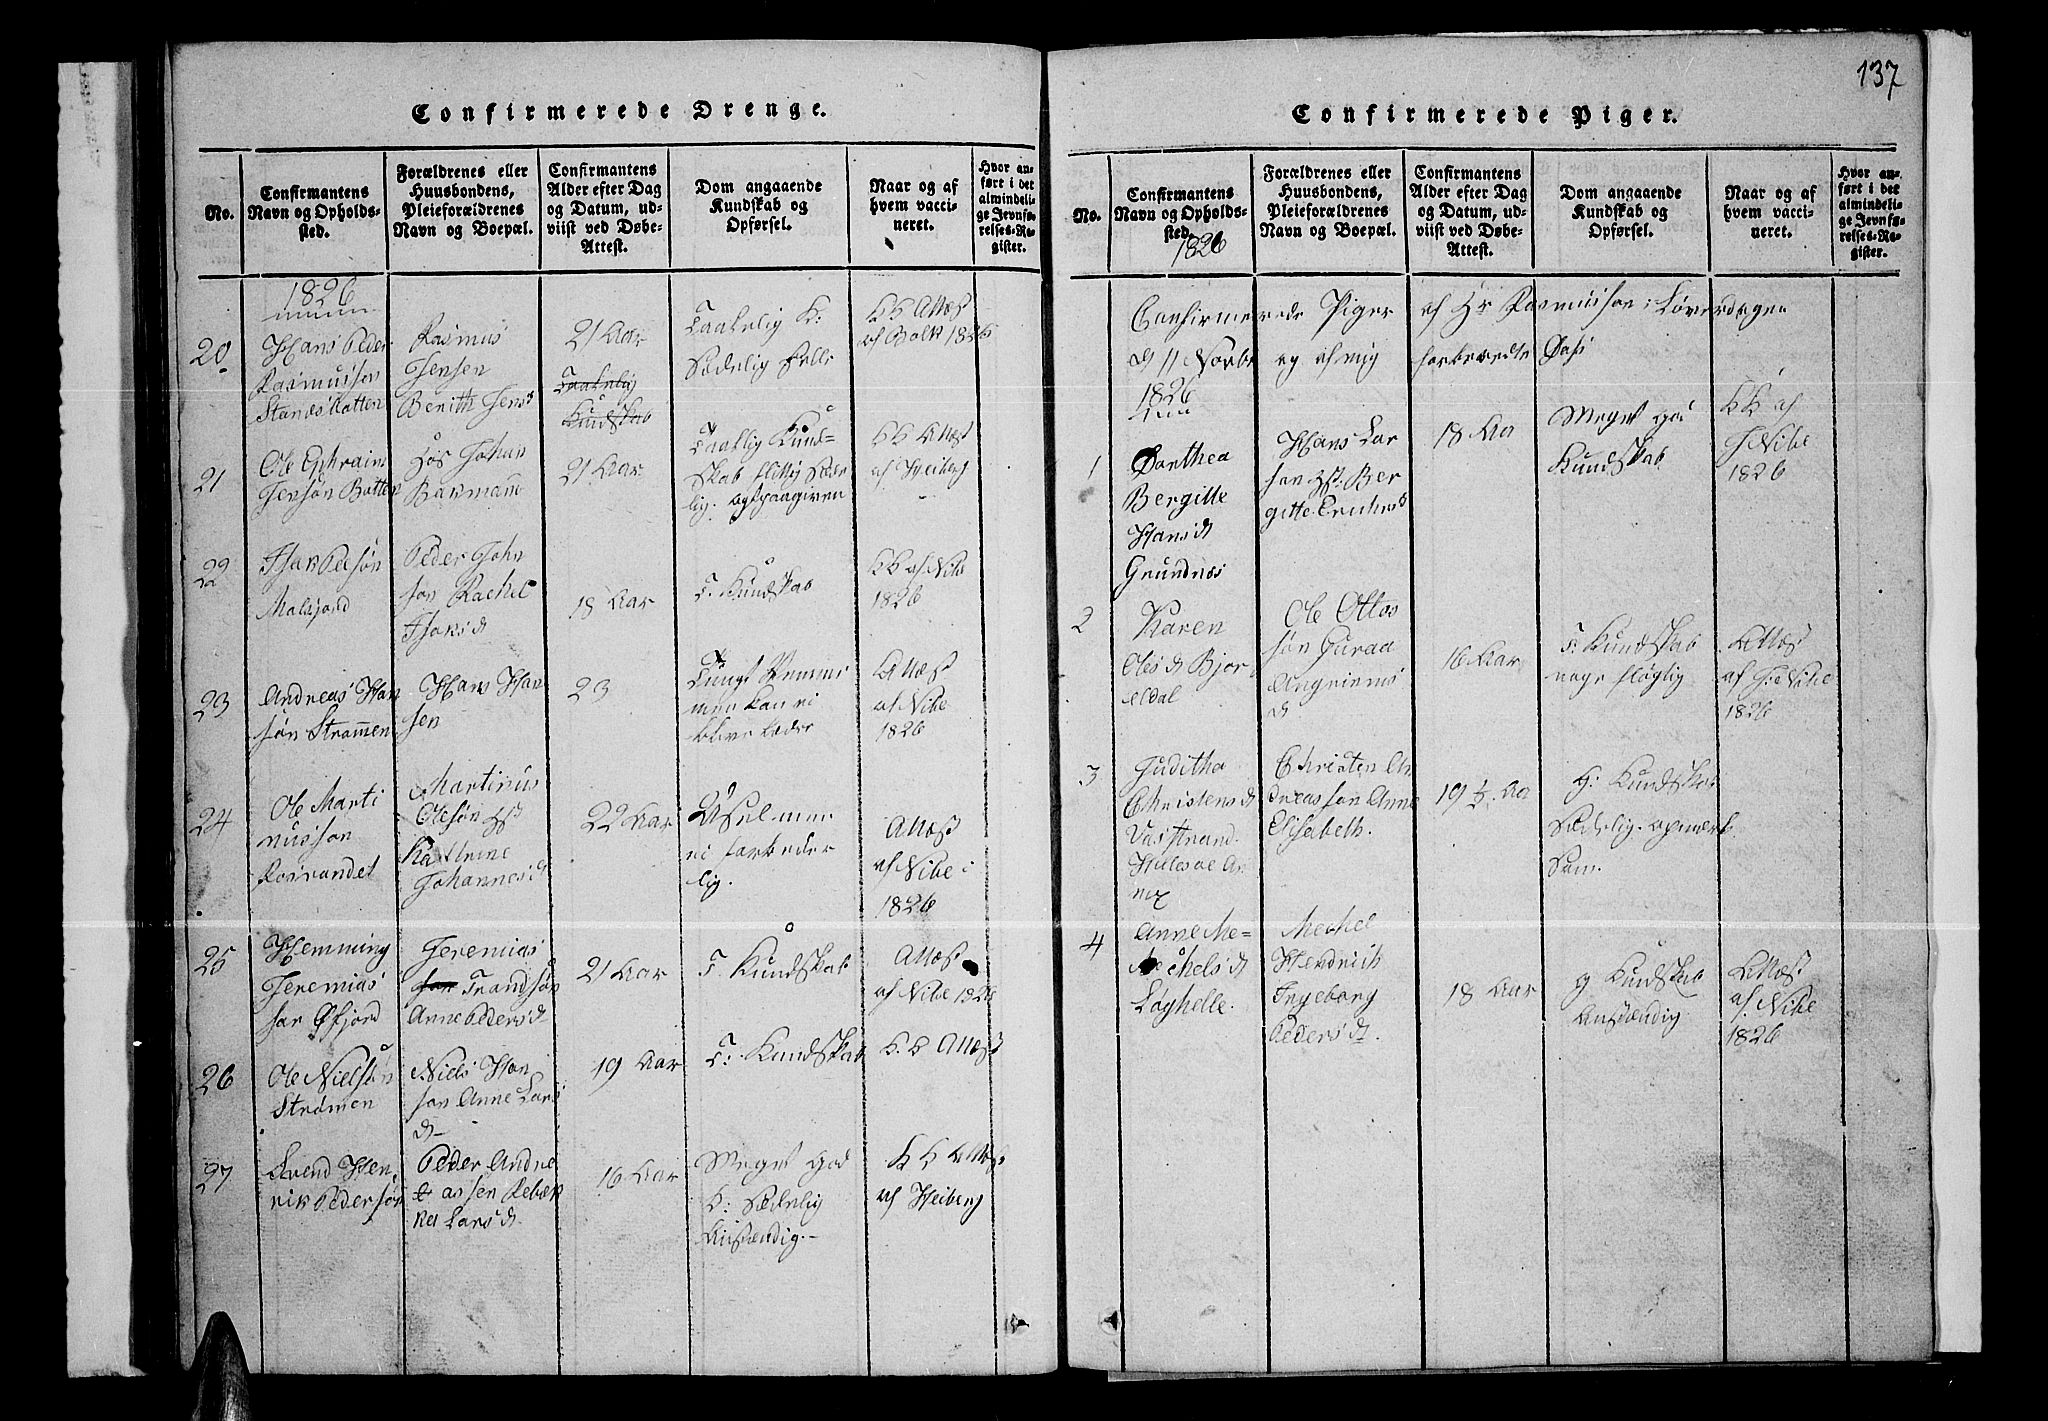 137
Confirmerede Drenge.
No.
Confirmantens
Navn og Opholds-
sted.
Forældrenes eller
Huusbondens,
Pleieforældrenes
Navn og Boepæl.
Confirmantens
Alder efter Dag
og Datum, ud-
viist ved Døbe-
Attest.
Dom angaaende
Kundskab og
Opførsel.
Naar og af
hvem vacci-
neret.
Hvor an-
ført i det
almindeli-
ge Jevnfø-
relses-Re-
gister.
1826
20
Hans Peder
Rasmussen
Rasmus
Jensen
Berith Jensd
21 Aar
Taalelig
Kundskab
Taalelig K:
Sædelig
KB Attest
af Balk 1826
21
Ole Ephraim
Jensøn Botten
Hos Johan
21 Aar
Taallig Kund-
skab flittig Sæde
lig.
KB Attest
af Heiberg
22
Malsjord
Peder John
søn Rachel
18 Aar
T. Kundskab
KB af Nibe
1826
23
Andreas Han
søn Strømmen
Hans Han
sen
23
Attest
af Nibe
1826
24
Ole Marti
nussøn
Martinus
Olesøn Hst
Johannesd
22 Aar
lig.
Attest
af Nibe i
1826
25
Hemming
Jeremias
søn Øfjord
Jeremias
Trondsøn
Anne Pedersd
21 Aar
T. Kundskab
Attest
af Nibe 1826
26
Ole Nielsøn
Strømen
Niels Han
søn Anne Lars
d
19 Aar
T: Kundskab
K. B Attest
27
Arend Hen
rik Pedersøn
Peder Andre
assen Rebæk
ka Larsd.
16 Aar
Meget God
K: Sædelig
Anstændig.
KB Attest
af Heiberg
Confirmerede Piger.
No.
Confirmantens
Navn og Opholds-
sted.
1826
Forældrenes eller
Huusbondens,
Pleieforældrenes
Navn og Boepæl.
Confirmantens
Alder efter Dag
og Datum, ud-
viist ved Døbe-
Attest.
Dom angaaende
Kundskab og
Opførsel.
Naar og af
hvem vacci-
neret.
Hvor an-
ført i det
almindeli-
ge Jevnfø-
relses-Re-
gister.
Confirmerede Piger af Hr Rasmussen i Løverdagen
d 11 Novbr og af mig forberedte
1826
1
Dorthea
Bergitte
Hansd
Grundnæs
Hans Lar
søn Hst: Ber
gitte Erichsd
18 Aa
Meget god
Kundskab
KB af
H Nibe
1826
2
Karen
Olesd Bjor
eldal
Ole Ottes
søn Guraa
d
16 Aar
T: Kundskab
Attest
af H: Nibe
1826
3
Juditha
Christensd
Vasstrand
Christen An
dreassøn Anne
Elisabeth.
19 ½ Aa
G: Kundskab
Sædelig. opmærk
Som.
4
Anne Me-
chelsd
Løghelle.
Mechel
Hendrich
Ingeborg
Pedersd.
18 Aar
g Kundskab
Anstændig
Attest
af. Nibe
1826